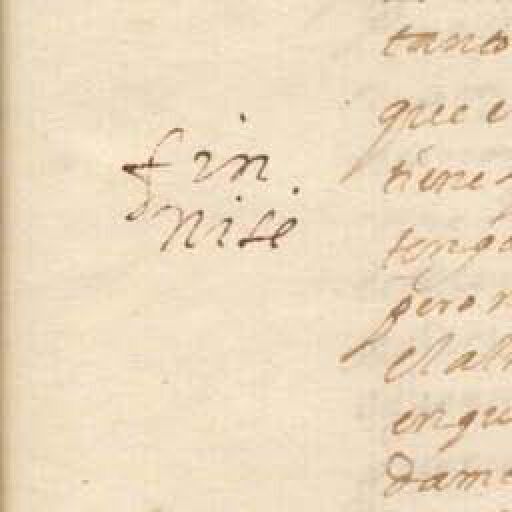 fin
nise
tanto
que e
tiene
teng
pero n
el al
en qu
dame